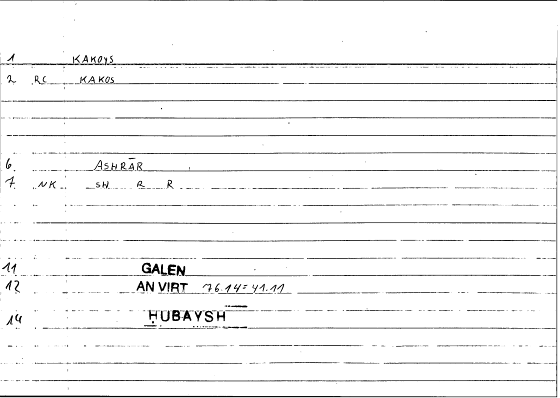 1 KAKOYS
2 RC KAKOS
6 ASHRĀR
7 NK SH R R
11 GALEN
12 AN VIRT 76.14=41.11
14 ḤUBAYSH